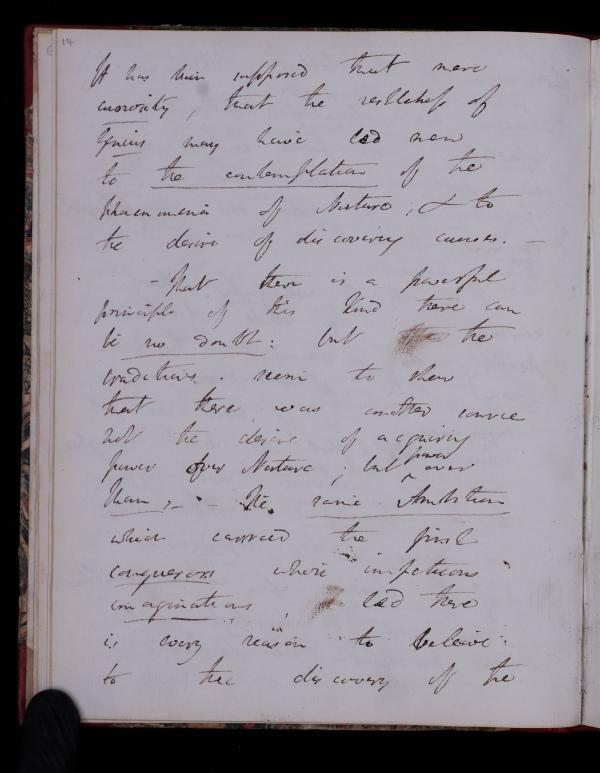 14
It has been supposed that mere
curiosity, that the restlessness of
Genius may have led men
to the contemplation of the
phaenomena of Nature, & to
the desire of discovering causes. —
- That there is a powerful
principle of this kind there can
be no doubt: but the
traditions seem to shew
that there was another source
not the desire of acquiring
power over Nature; but power over
Man; - The same Ambition
which carried the first
conquerors whose impetuous
imaginations, led there
is every reason to beleive
to the discovery of the